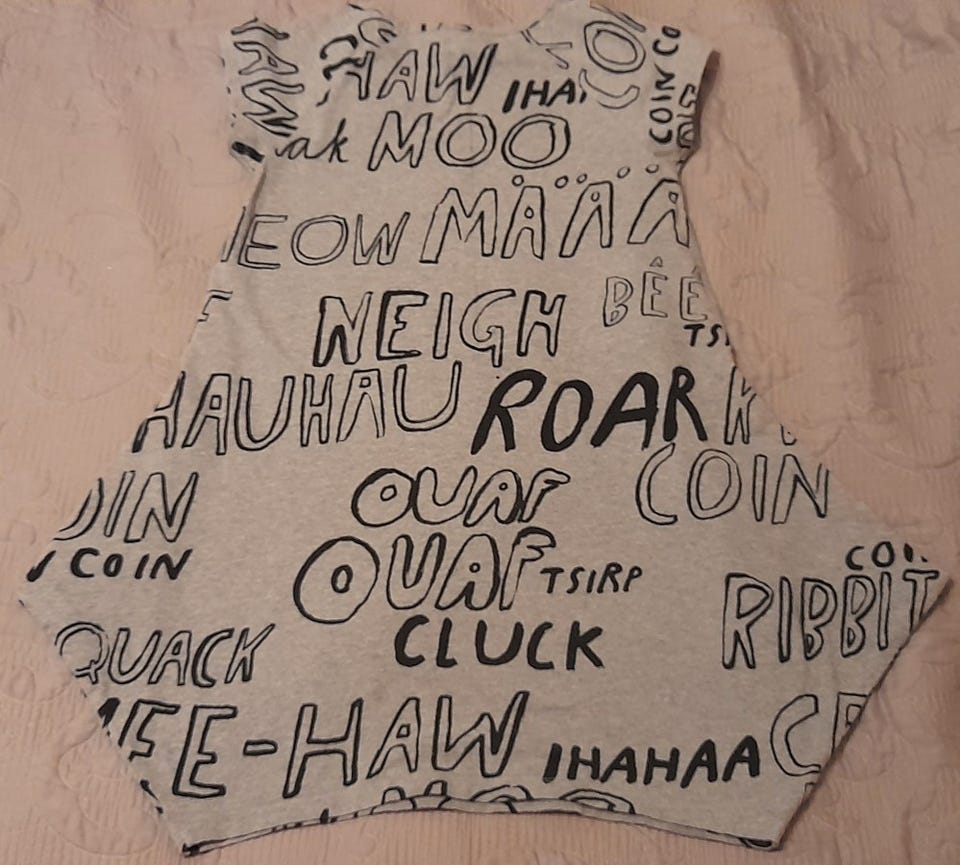 HAW IHA
COIN CO
ak MOO
EOW MÄÄÄ
NEIGH BÊÊ
TSI
HAUHAU ROAR
OIN OUAF COIN
COIN OUAF TSIRP COI
QUACK CLUCK RIBBIT
EE-HAW IHAHAA